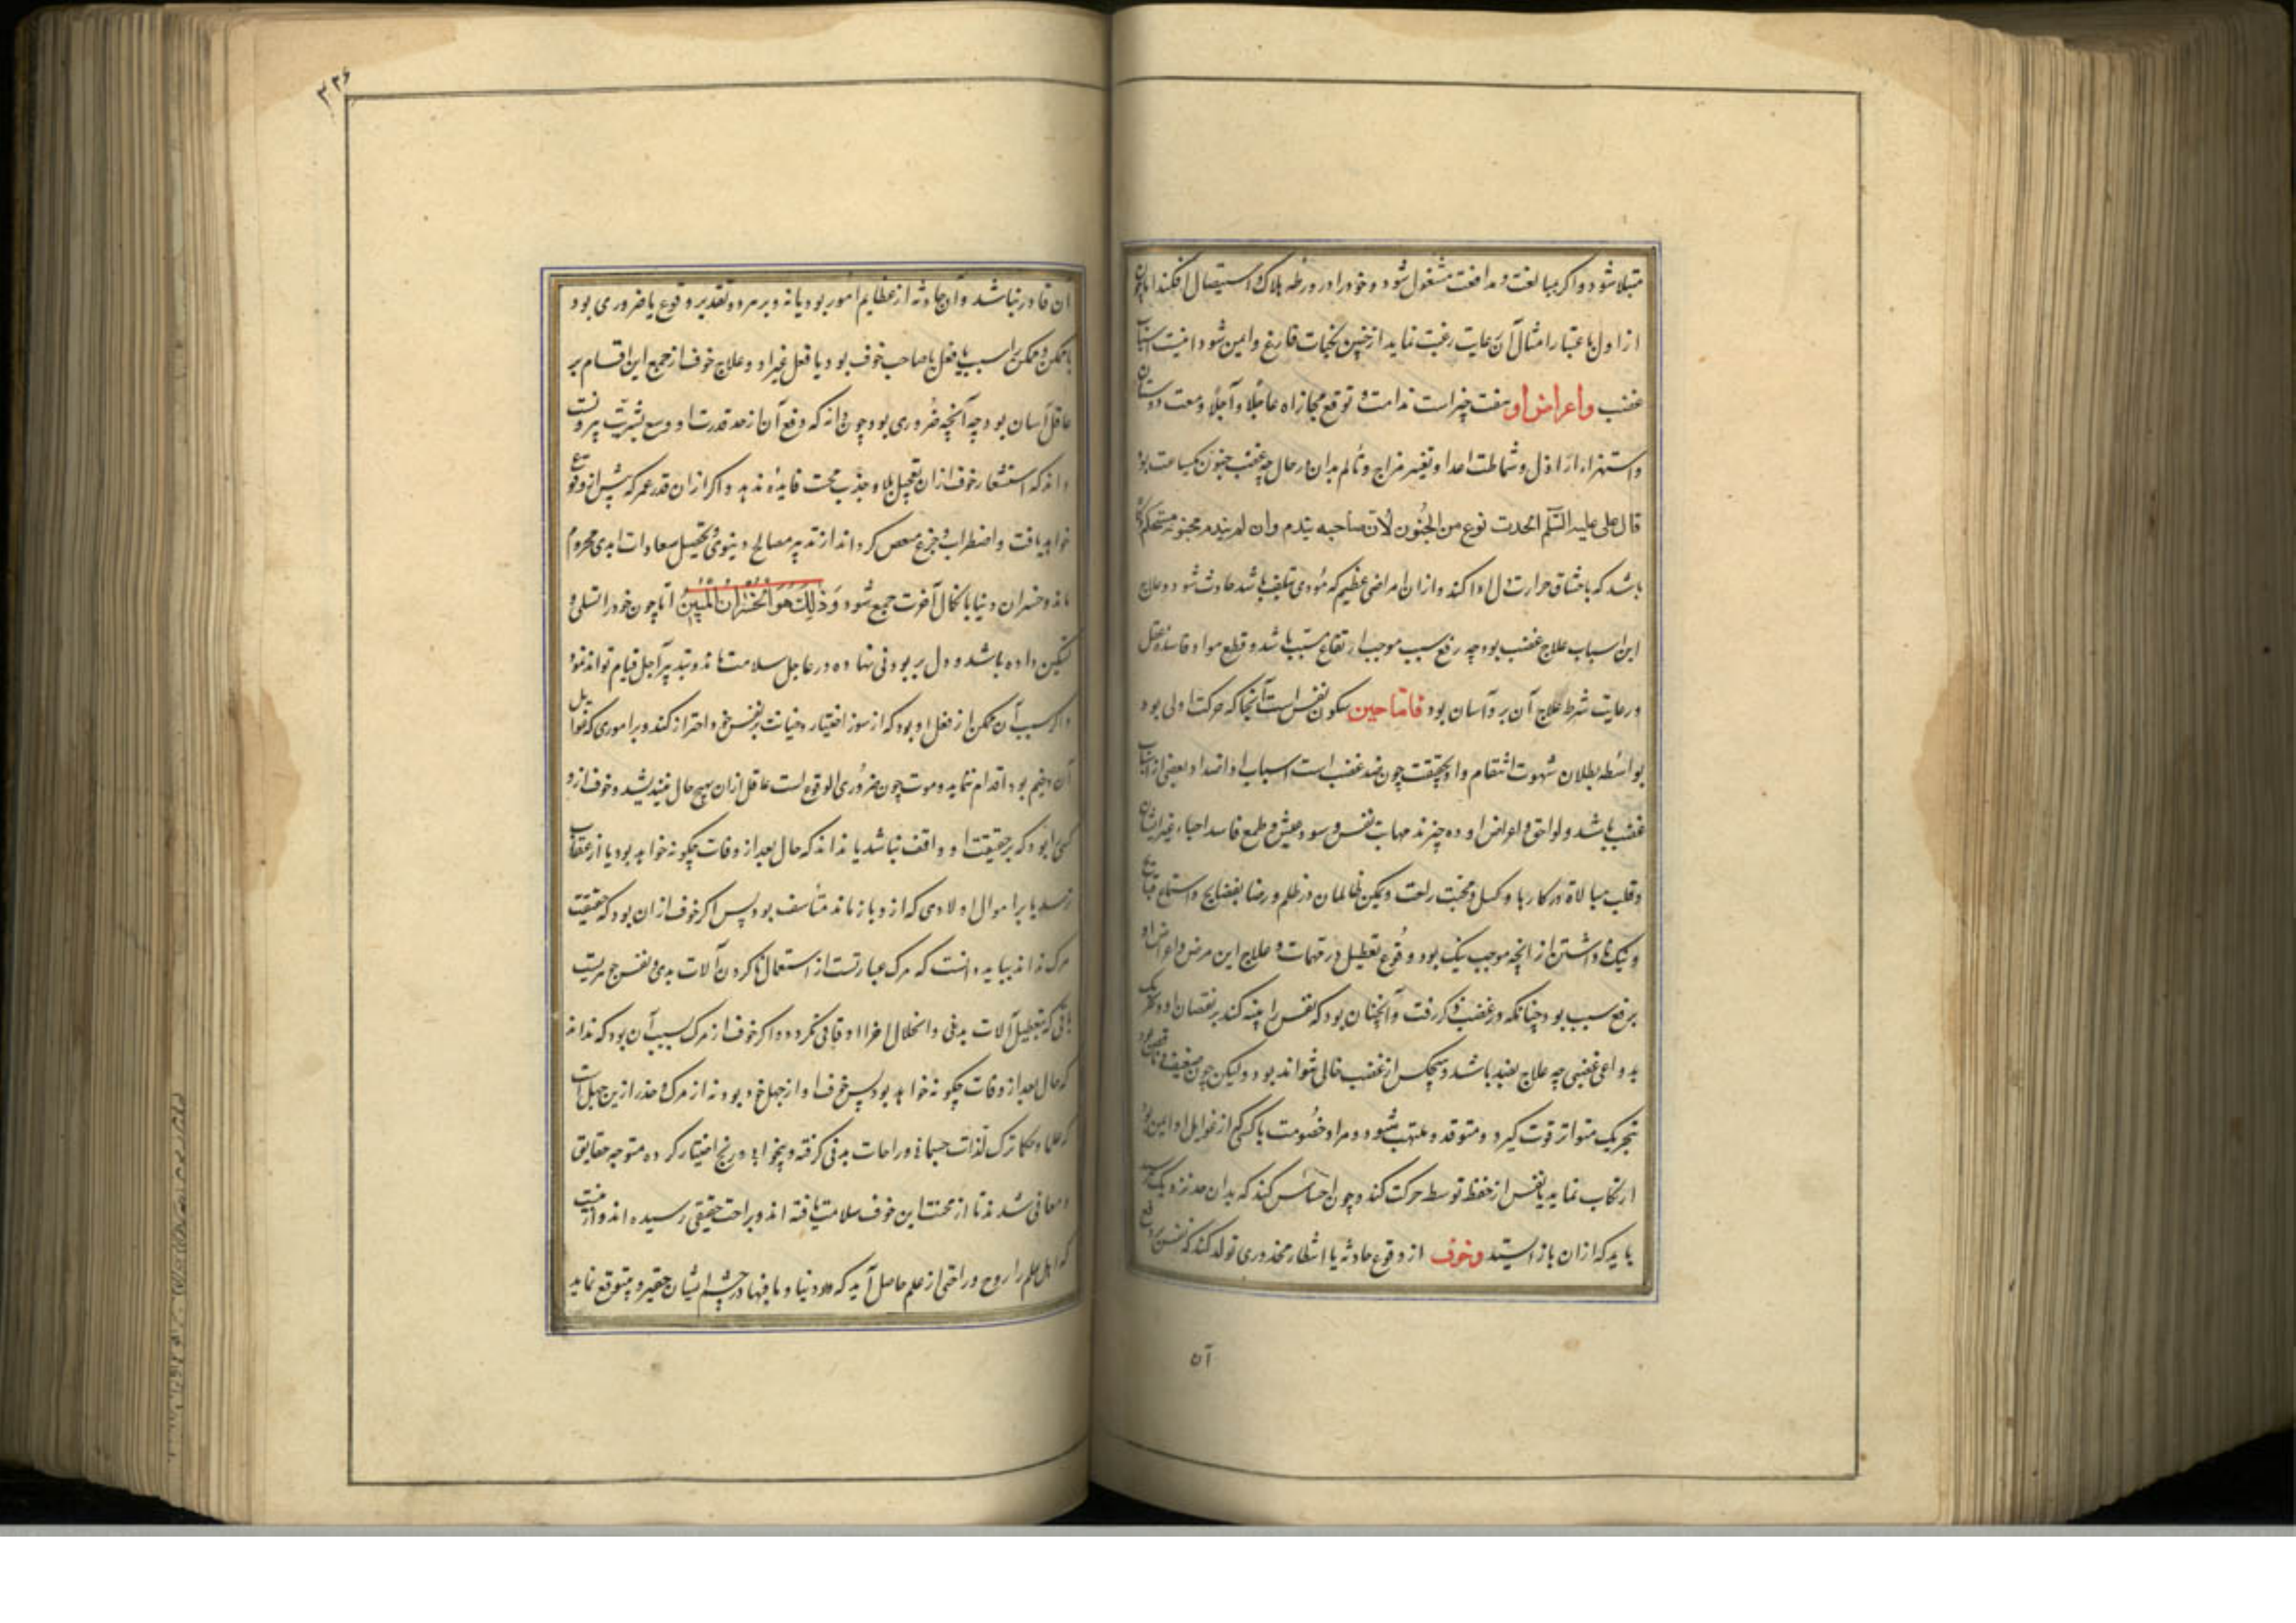 مبتلا شود و اگر بمبالغت و مدافعت مشغول شود و خود را در ورطه هلاک و استیصال افکند اما چون
از اول باعتبار امثال آن رعایت رغبت نماید از چنین نکبات فارغ و ایمن شود اینست اسباب
غضب واعراض او هفت چیز است ندامت و توقع مجازاه عاجلًا و آجلًا و مقت دوستان
و استهزاء اراذل و شماتت اعدا و تغییر مزاج و تألم بدان در حال چه غضب جنون یکساعت بود
قال علی علیه السّلم الحدت نوع من الجُنون لان صاحبه یندم وان لم یندم فجنونه مستحکم و گاه
باشد که باختناق حرارت دل ادا کند و از ان امراض عظیم که مُؤدی بتلف باشد حادث شود و علاج
این اسباب علاج غضب بود چه رفع سبب موجب ارتفاع مسبّب باشد و قطع مواد فاسد عقل
و رعایت شرط علاج آن بر و آسان بود فامّا جبن سکون نفس است آنجا که حرکت اولی بود
بواسطه بطلان شهوت انتقام و او بحقیقت چون ضد غضب است اسباب او اضداد بعضی از اسباب
غضب باشد و لواحق و اعراض او ده چیزند مهانت نفس و سوء عیش و طمع فاسد احباء و غیر ایشان
و قلت مبالاة در کارها و کسل و محبت راحت و تمکین ظالمان در ظلم و رضا بفضایح و استماع قبایح
و ننگ نا داشتن از آنچه موجب ننگ بود و وُقوع تعطیل در مهمات و علاج این مرض و اعراض او
برفع سبب بود چنانکه در غضب ذکر رفت و آنچنان بود که نفس را تنبیه کند بر نقصان او و تحریک
بدواعی غضبی چه علاج بضد باشد و هیچکس از غضب خالی نتواند بود و لیکن چون ضعیف و ناقص بود
بتحریک متواتر قوت گیرد و متوقد و ملتهب شود و مراء و خصومت با کسی که از غوایل او ایمن بود
ارتکاب نماید تا نفس از حفظ توسط حرکت کند و چون احساس کند که بدان حد نزدیک رسید
باید که ازان باز ایستد وخوف از وقوع حادثه یا انتظار محذوری تولد کند که نفس بر دفع
آن
۳۲۶
آن قادر نباشد و آن حادثه از عظایم امور بود یا نه و بر هر دو تقدیر وقوع یا ضروری بود
یا ممکن و ممکن را سبب یا فعل صاحب خوف بود یا فعل غیر او و علاج خوف از جمیع این اقسام بر
عاقل آسان بود چه آنچه ضروری بود چون داند که دفع آن از حد قدرت او و وسع بشریت بیرونست
داند که استشعار خوف ازان تعجیل بلا و جذب محنت فایده ندهد و اگر ازان قدر عمر که پیش از وقوع
خواهد یافت و اضطراب و جزع منغص گرداند از تدبیر مصالح دنیوی و تحصیل سعادات ابدی محروم
ماند و خسران دنیا با نکال آخرت جمع شود وَذٰلِكَ هُوَ الْخُسْرَانُ الْمُبِینُ اما چون خود را تسلی و
تسکین داده باشد و دل بر بودنی نهاده در عاجل سلامت ماند و بتدبیر آجل قیام تواند نمود
و اگر سبب آن ممکن از فعل او بود که از سوء اختیار و خیانت بر نفس خود احتراز کند و بر اموری که غوایل
آن وخیم بود اقدام ننماید و موت چون ضروری الوقوع است عاقل ازان بهیچ حال نیندیشد و خوف ازو
کسی را بود که بر حقیقت او واقف نباشد یا نداند که حال بعد از وفات چگونه خواهد بود یا از عقاب
ترسد یا بر اموال و اولادی که ازو باز ماند متأسف بود پس اگر خوف ازان بود که حقیقت
مرگ نداند بباید دانست که مرگ عبارتست از استعمال ناکردن آلات بدنی و نفس جوهریست
باقی که بتعطیل آلات بدنی و انحلال اجزاء او فانی نگردد و اگر خوف از مرگ بسبب آن بود که نداند
که حال بعد از وفات چگونه خواهد بود پس خوف او از جهل خود بود نه از مرگ و حذر ازین جهل است
که علما و حکما ترک لذات جسمانی و راحات بدنی گرفته و بیخوابی و رنج اختیار کرده متوجه حقایق
و معانی شدند تا از محنت این خوف سلامت یافته اند و براحت حقیقی رسیده اند و ازینست
که اهل علم را روح و راحتی از علم حاصل آید که دنیا و ما فیها در چشم ایشان حقیر و بیتوقع نماید